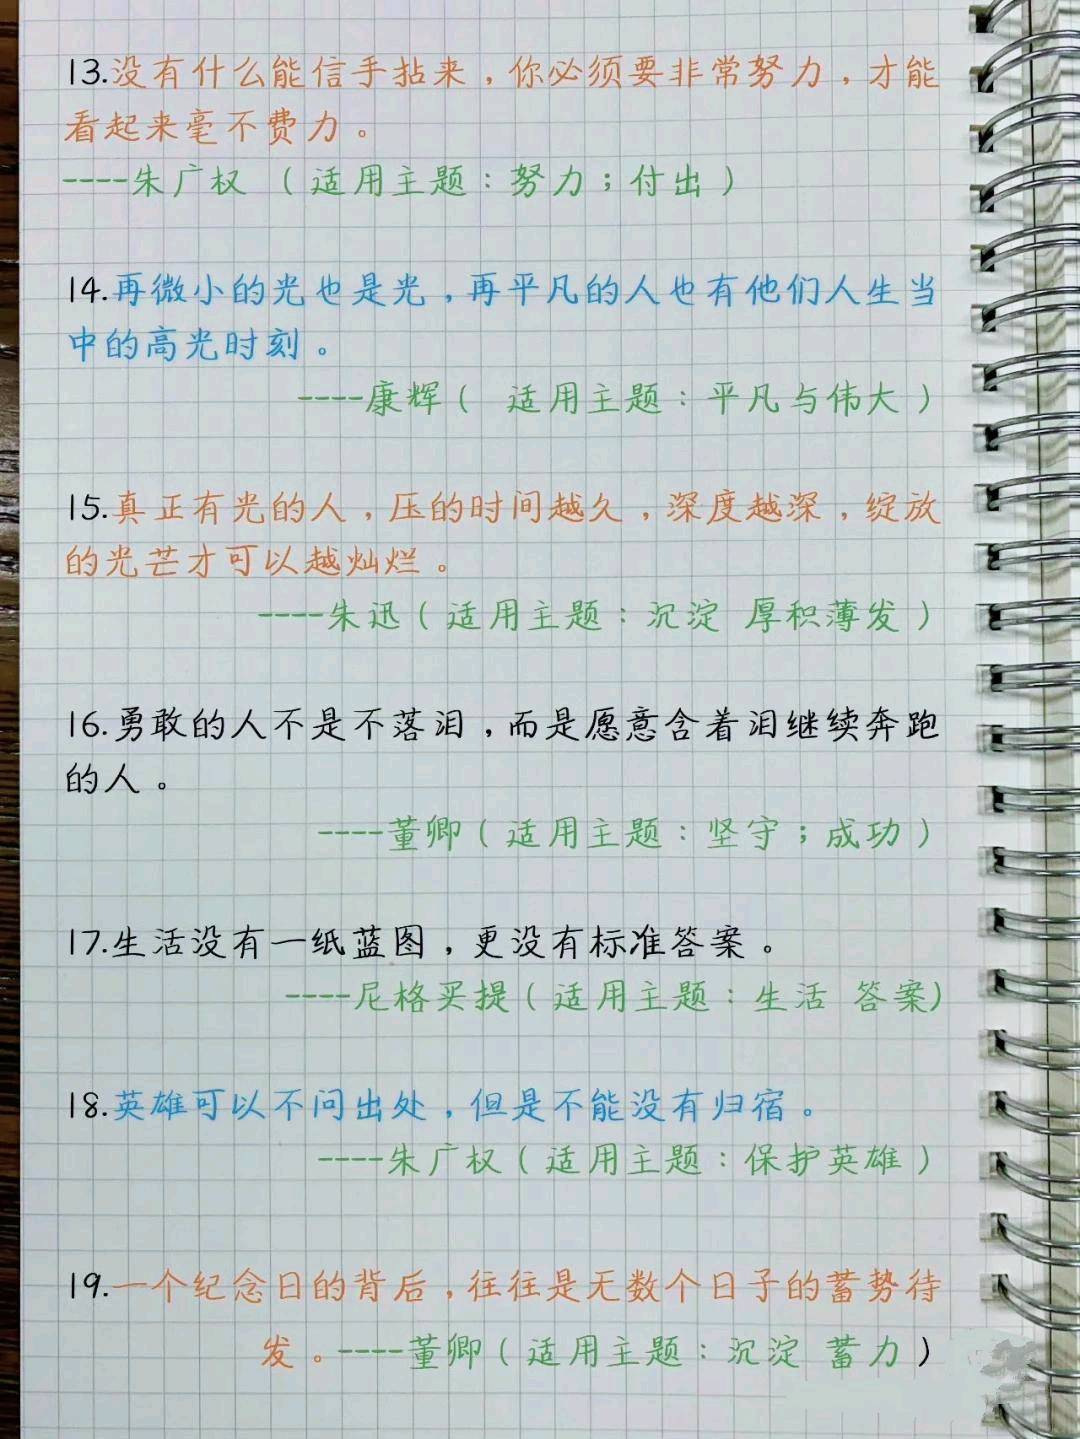 13.没有什么能信手拈来，你必须要非常努力，才能
看起来毫不费力。
----朱广权 （适用主题：努力；付出）
14.再微小的光也是光，再平凡的人也有他们人生当
中的高光时刻。
----康辉（ 适用主题：平凡与伟大）
15.真正有光的人，压的时间越久，深度越深，绽放
的光芒才可以越灿烂。
----朱迅（适用主题：沉淀 厚积薄发）
16.勇敢的人不是不落泪，而是愿意含着泪继续奔跑
的人。
----董卿（适用主题：坚守；成功）
17.生活没有一纸蓝图，更没有标准答案。
----尼格买提（适用主题：生活 答案）
18.英雄可以不问出处，但是不能没有归宿。
----朱广权（适用主题：保护英雄）
19.一个纪念日的背后，往往是无数个日子的蓄势待
发。----董卿（适用主题：沉淀 蓄力）